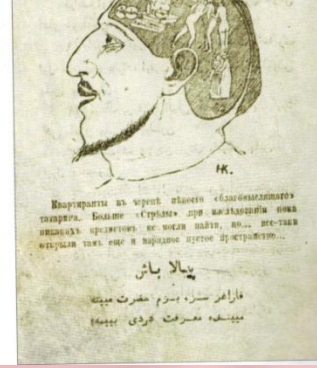 НК.
Квартиранты въ черепѣ нѣкоего «благомыслящаго»
татарина. Больше «Стрѣлы» при изслѣдованіи пока
никакихъ предметовъ не могли найти, но... все-таки
открыли тамъ еще и изрядное пустое пространство...
باش
قاراغز سز، بزم حضرت
معرفت دردی